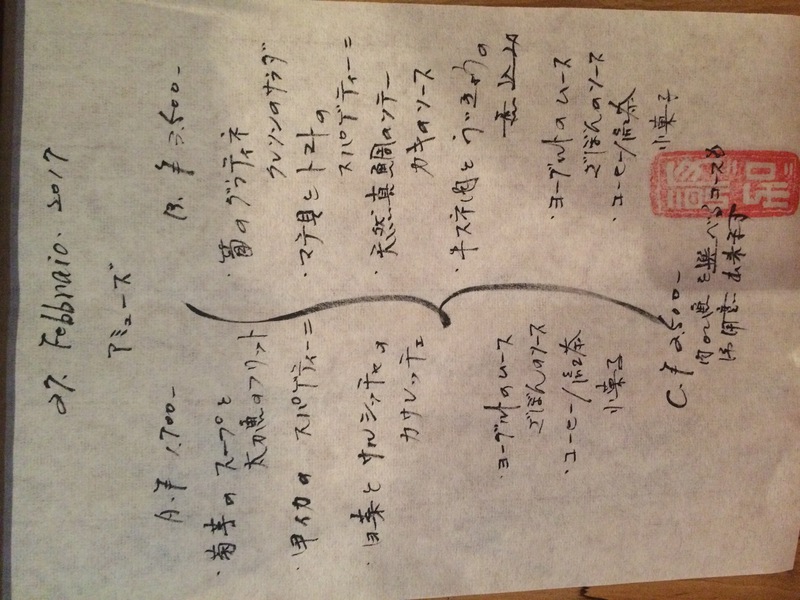 27. Febbraio. 2017
アミューズ
A. ¥ 1,700-
・菊芋のスープと
太刀魚のフリット
・甲イカの スパゲティーニ
・白菜とサルシッチャの
カサレッチェ
・ヨーグルトのムース
ざぼんのソース
・コーヒー/紅茶
小菓子
B. ¥ 3,500-
のグラティネ
クレソンのサラダ
・マテ貝とトマトの
スパゲティーニ
・天然真鯛のソテー
カキのソース
・牛スネ肉と
煮込み
・ヨーグルトのムース
ざぼんのソース
・コーヒー/紅茶
小菓子
C. ¥ 2,500-
肉or魚を選べるコースも
御用意出来ます